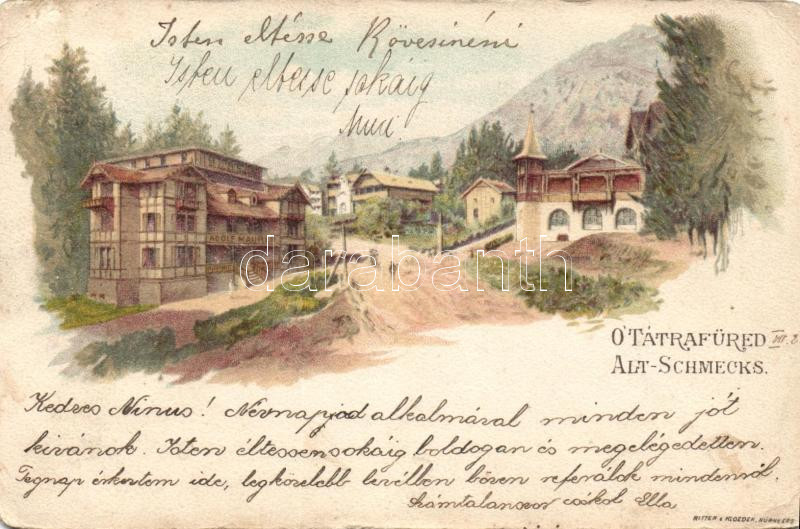 Isten éltesse Kövesinéni
Isten éltesse sokáig
ADOLF
darabanth.com
Ó TÁTRAFÜRED VIII. 2
ALT-SCHMECKS.
Kedves Ninus! Névnapjad alkalmával minden jót
kivánok. Isten éltessen sokáig boldogan és megelégedetten.
Tegnap érkeztem ide, legközelebb levélben bőven referálok mindenről.
Számtalanszor csókol Ella
RITTER & KLOEDEN, NÜRNBERG